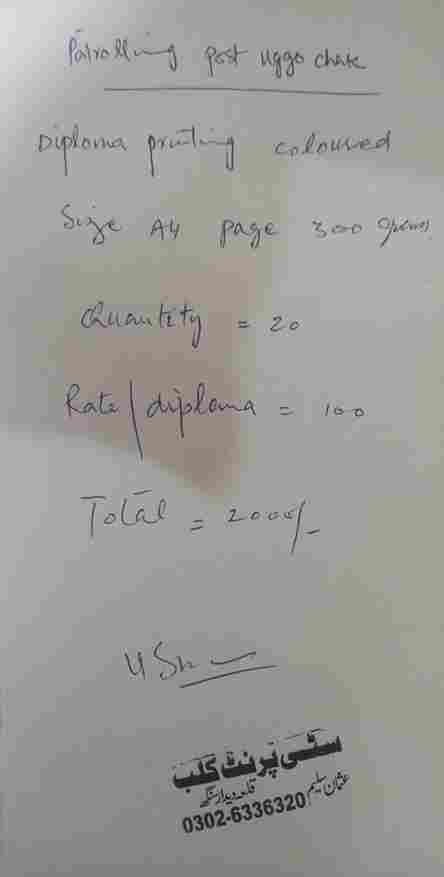 Patrolling post uggo chak
Diploma printing coloured
Size A4 page 300 grams
Quantity = 20
Rate/diploma = 100
Total = 2000/-
سٹی پرنٹ کلب
عثمان سلیم قلعہ دیدار سنگھ
0302-6336320